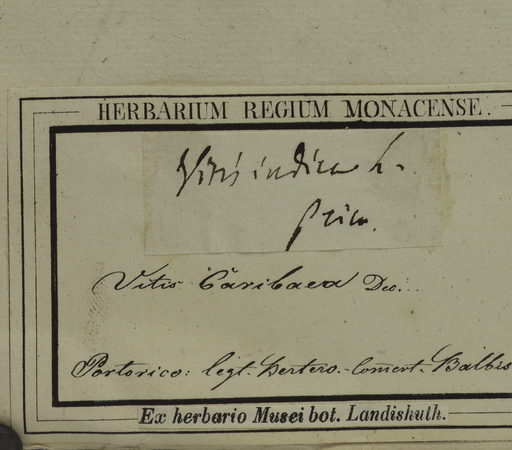 HERBARIUM REGIUM MONACENSE.
Vitis indica h.
Vitis Caribaea Dec.
Portorico: legt. Bertero. - Comt. Balbis
Ex herbario Musei bot. Landishuth.